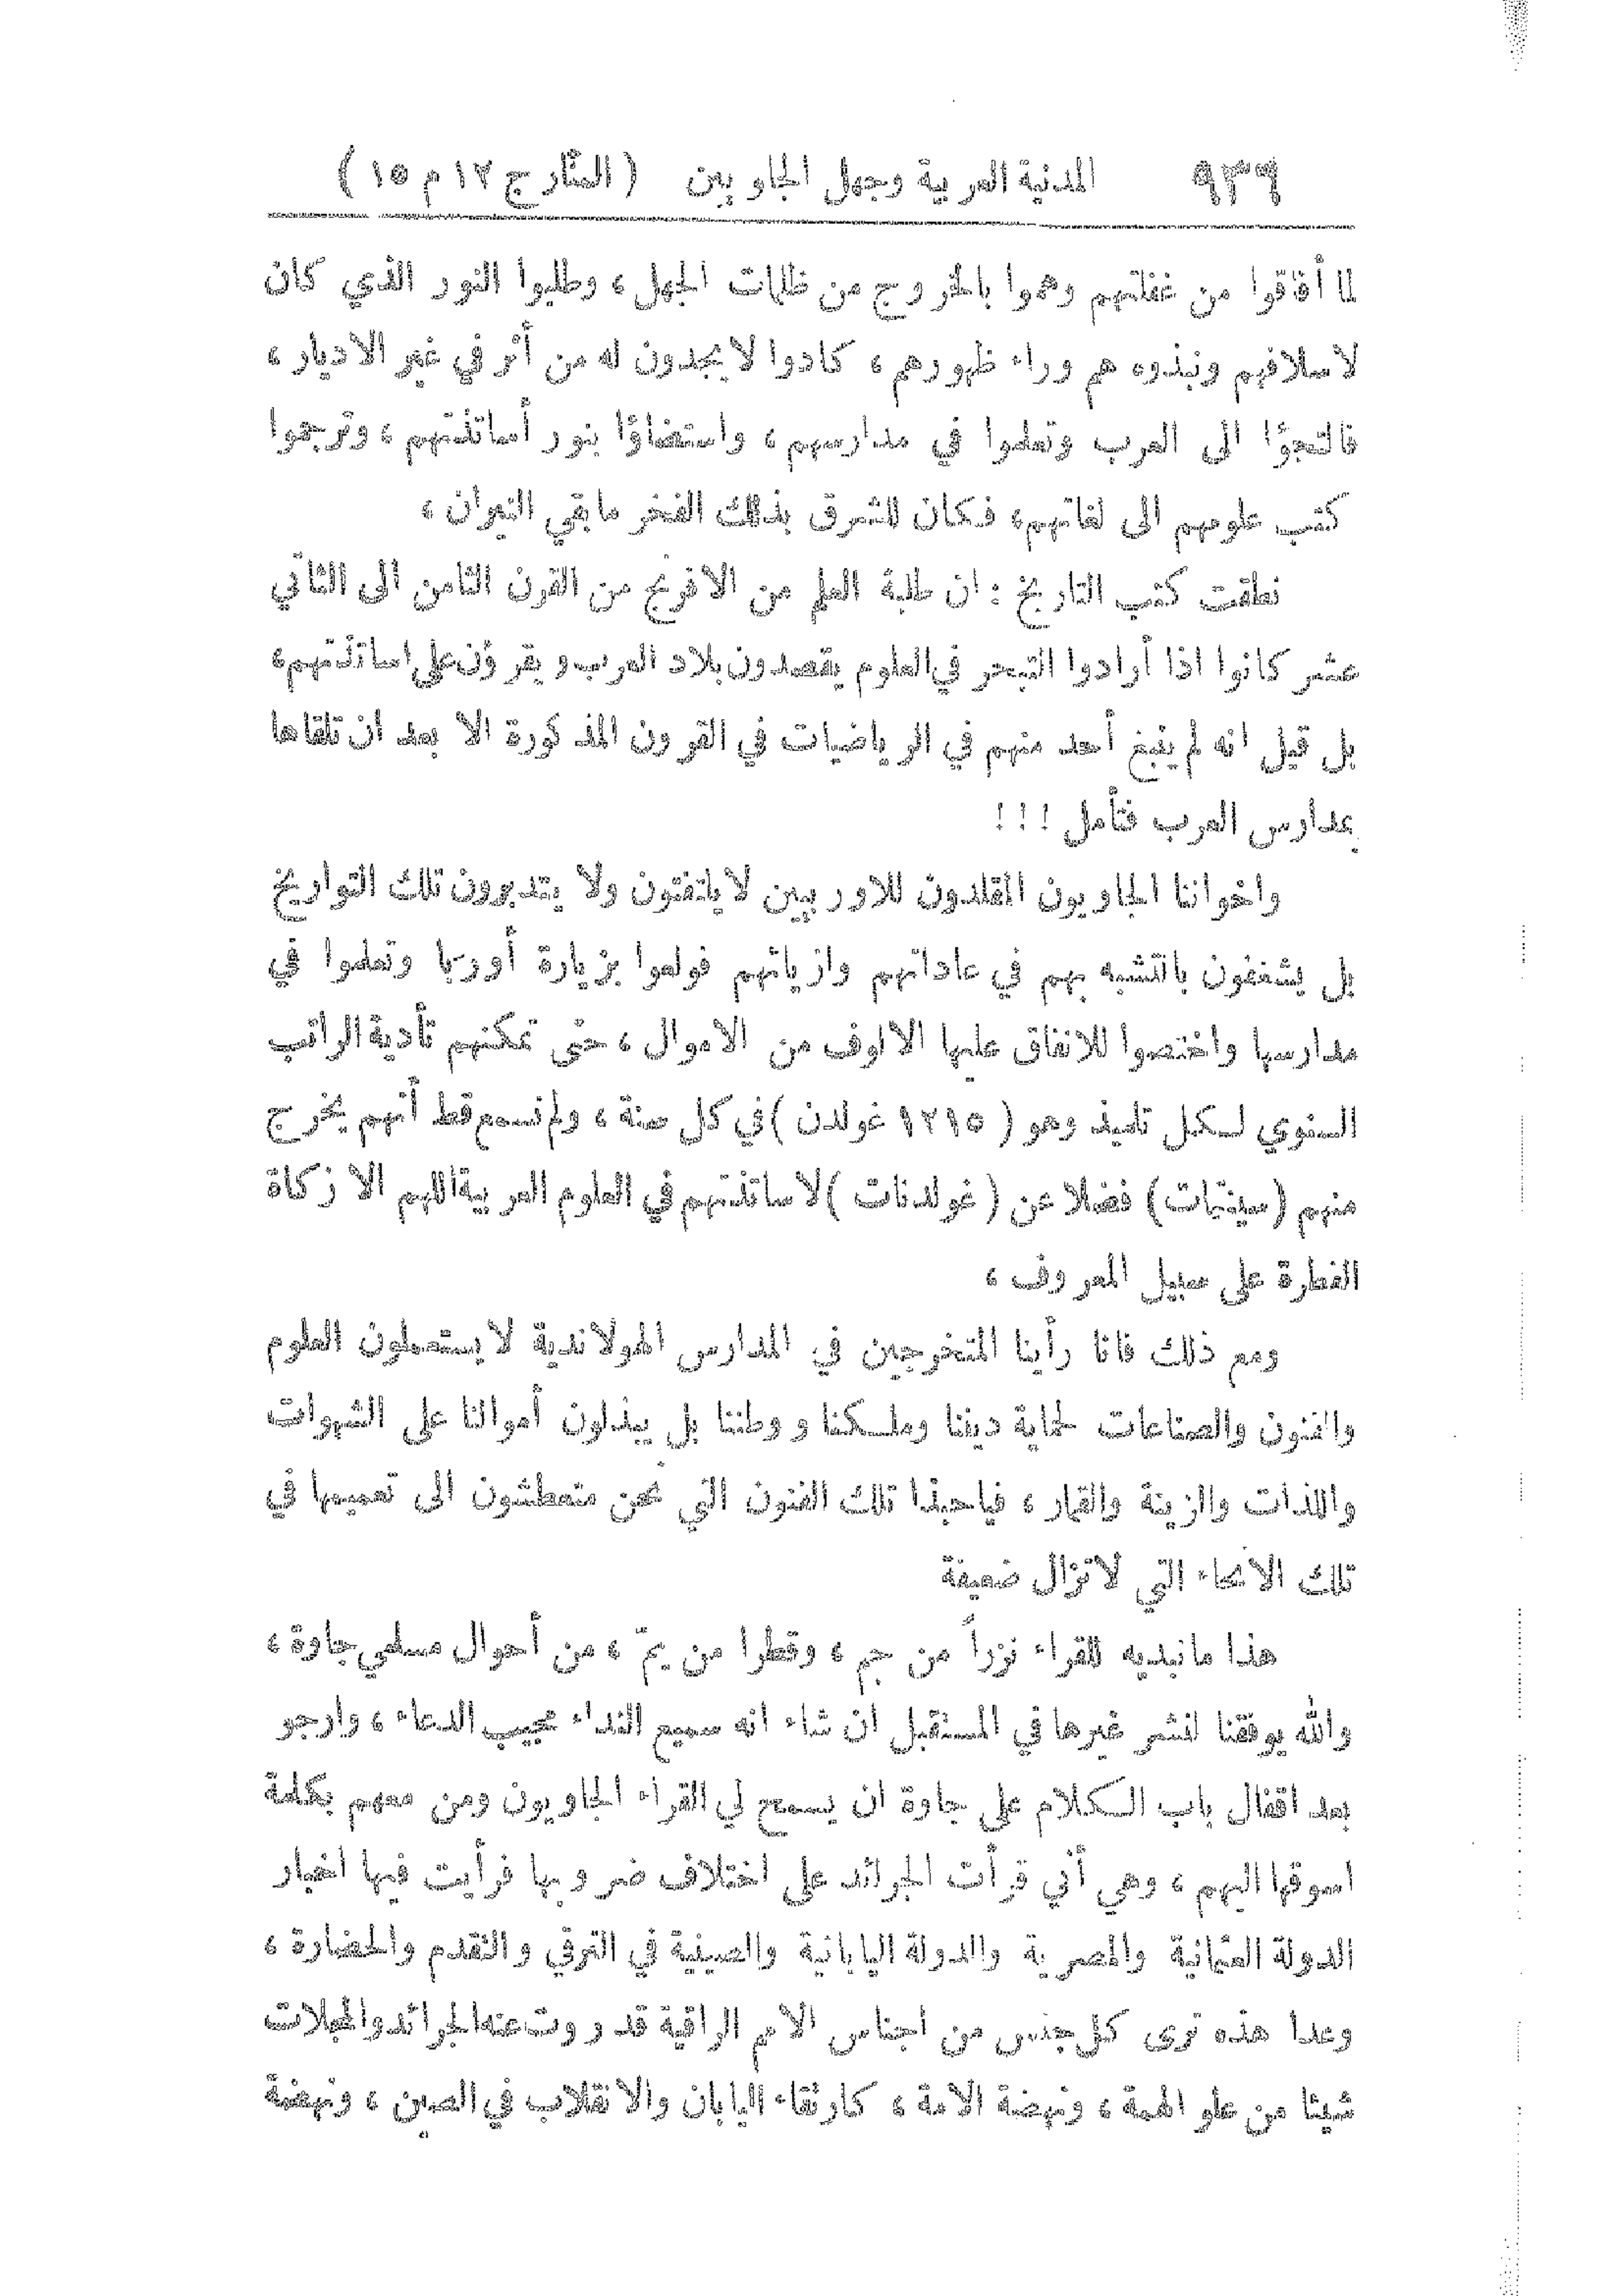 ٩٣٦ المدنية العربية وجهل الجاويين ( المنار ج ١٢ م ١٥ )
لما أفاقوا من غفلتهم وهموا بالخروج من ظلمات الجهل ، وطلبوا النور الذي كان
لاسلافهم ونبذوه هم وراء ظهورهم ، كادوا لا يجدون له من أثر في غير الاديار ،
فالتجؤا الى العرب وتعلموا في مدارسهم ، واستضاؤا بنور أساتذتهم ، وترجموا
كتب علومهم الى لغاتهم، فكان للشرق بذلك الفخر ما بقي النيران ،
نطقت كتب التاريخ : ان طلبة العلم من الافرنج من القرن الثامن الى الثاني
عشر كانوا اذا أرادوا التبحر في العلوم يقصدون بلاد العرب ويقرؤن على اساتذتهم،
بل قيل انه لم ينبغ أحد منهم في الرياضيات في القرون المذكورة الا بعد ان تلقاها
بمدارس العرب فتأمل ! ! !
واخواننا الجاويون المقلدون للاوربيين لا يلتفتون ولا يتدبرون تلك التواريخ
بل يشغفون بالتشبه بهم في عاداتهم وازيائهم فولعوا بزيارة أوربا وتعلموا في
مدارسها واختصوا للانفاق عليها الالوف من الاموال ، حتى تمكنهم تأدية الراتب
السنوي لكل تلميذ وهو ( ١٢١٥ غولدن ) في كل سنة ، ولم نسمع قط أنهم يخرج
منهم (سينتيات) فضلا عن ( غولدنات ) لاساتذتهم في العلوم العربية اللهم الا زكاة
الفطرة على سبيل المعروف ،
ومع ذلك فانا رأينا المتخرجين في المدارس الهولاندية لا يستعملون العلوم
والفنون والصناعات لحماية ديننا وملكنا ووطننا بل يبذلون أموالنا على الشهوات
واللذات والزينة والقمار ، فياحبذا تلك الفنون التي نحن متعطشون الى تعميمها في
تلك الانحاء التي لا تزال ضعيفة
هذا ما نبديه للقراء نزراً من جم ، وقطرا من يمّ ، من أحوال مسلمي جاوة ،
والله يوفقنا لنشر غيرها في المستقبل ان شاء انه سميع النداء مجيب الدعاء ، وارجو
بعد اقفال باب الكلام على جاوة ان يسمح لي القراء الجاويون ومن معهم بكلمة
اسوقها اليهم ، وهي أني قرأت الجرائد على اختلاف ضروبها فرأيت فيها اخبار
الدولة العثمانية والمصرية والدولة اليابانية والصينية في الترقي والتقدم والحضارة ،
وعدا هذه ترى كل جنس من اجناس الامم الراقية قد روت عنه الجرائد والمجلات
شيئا من علو الهمة ، ونهضة الامة ، كارتقاء اليابان والانقلاب في الصين ، ونهضة